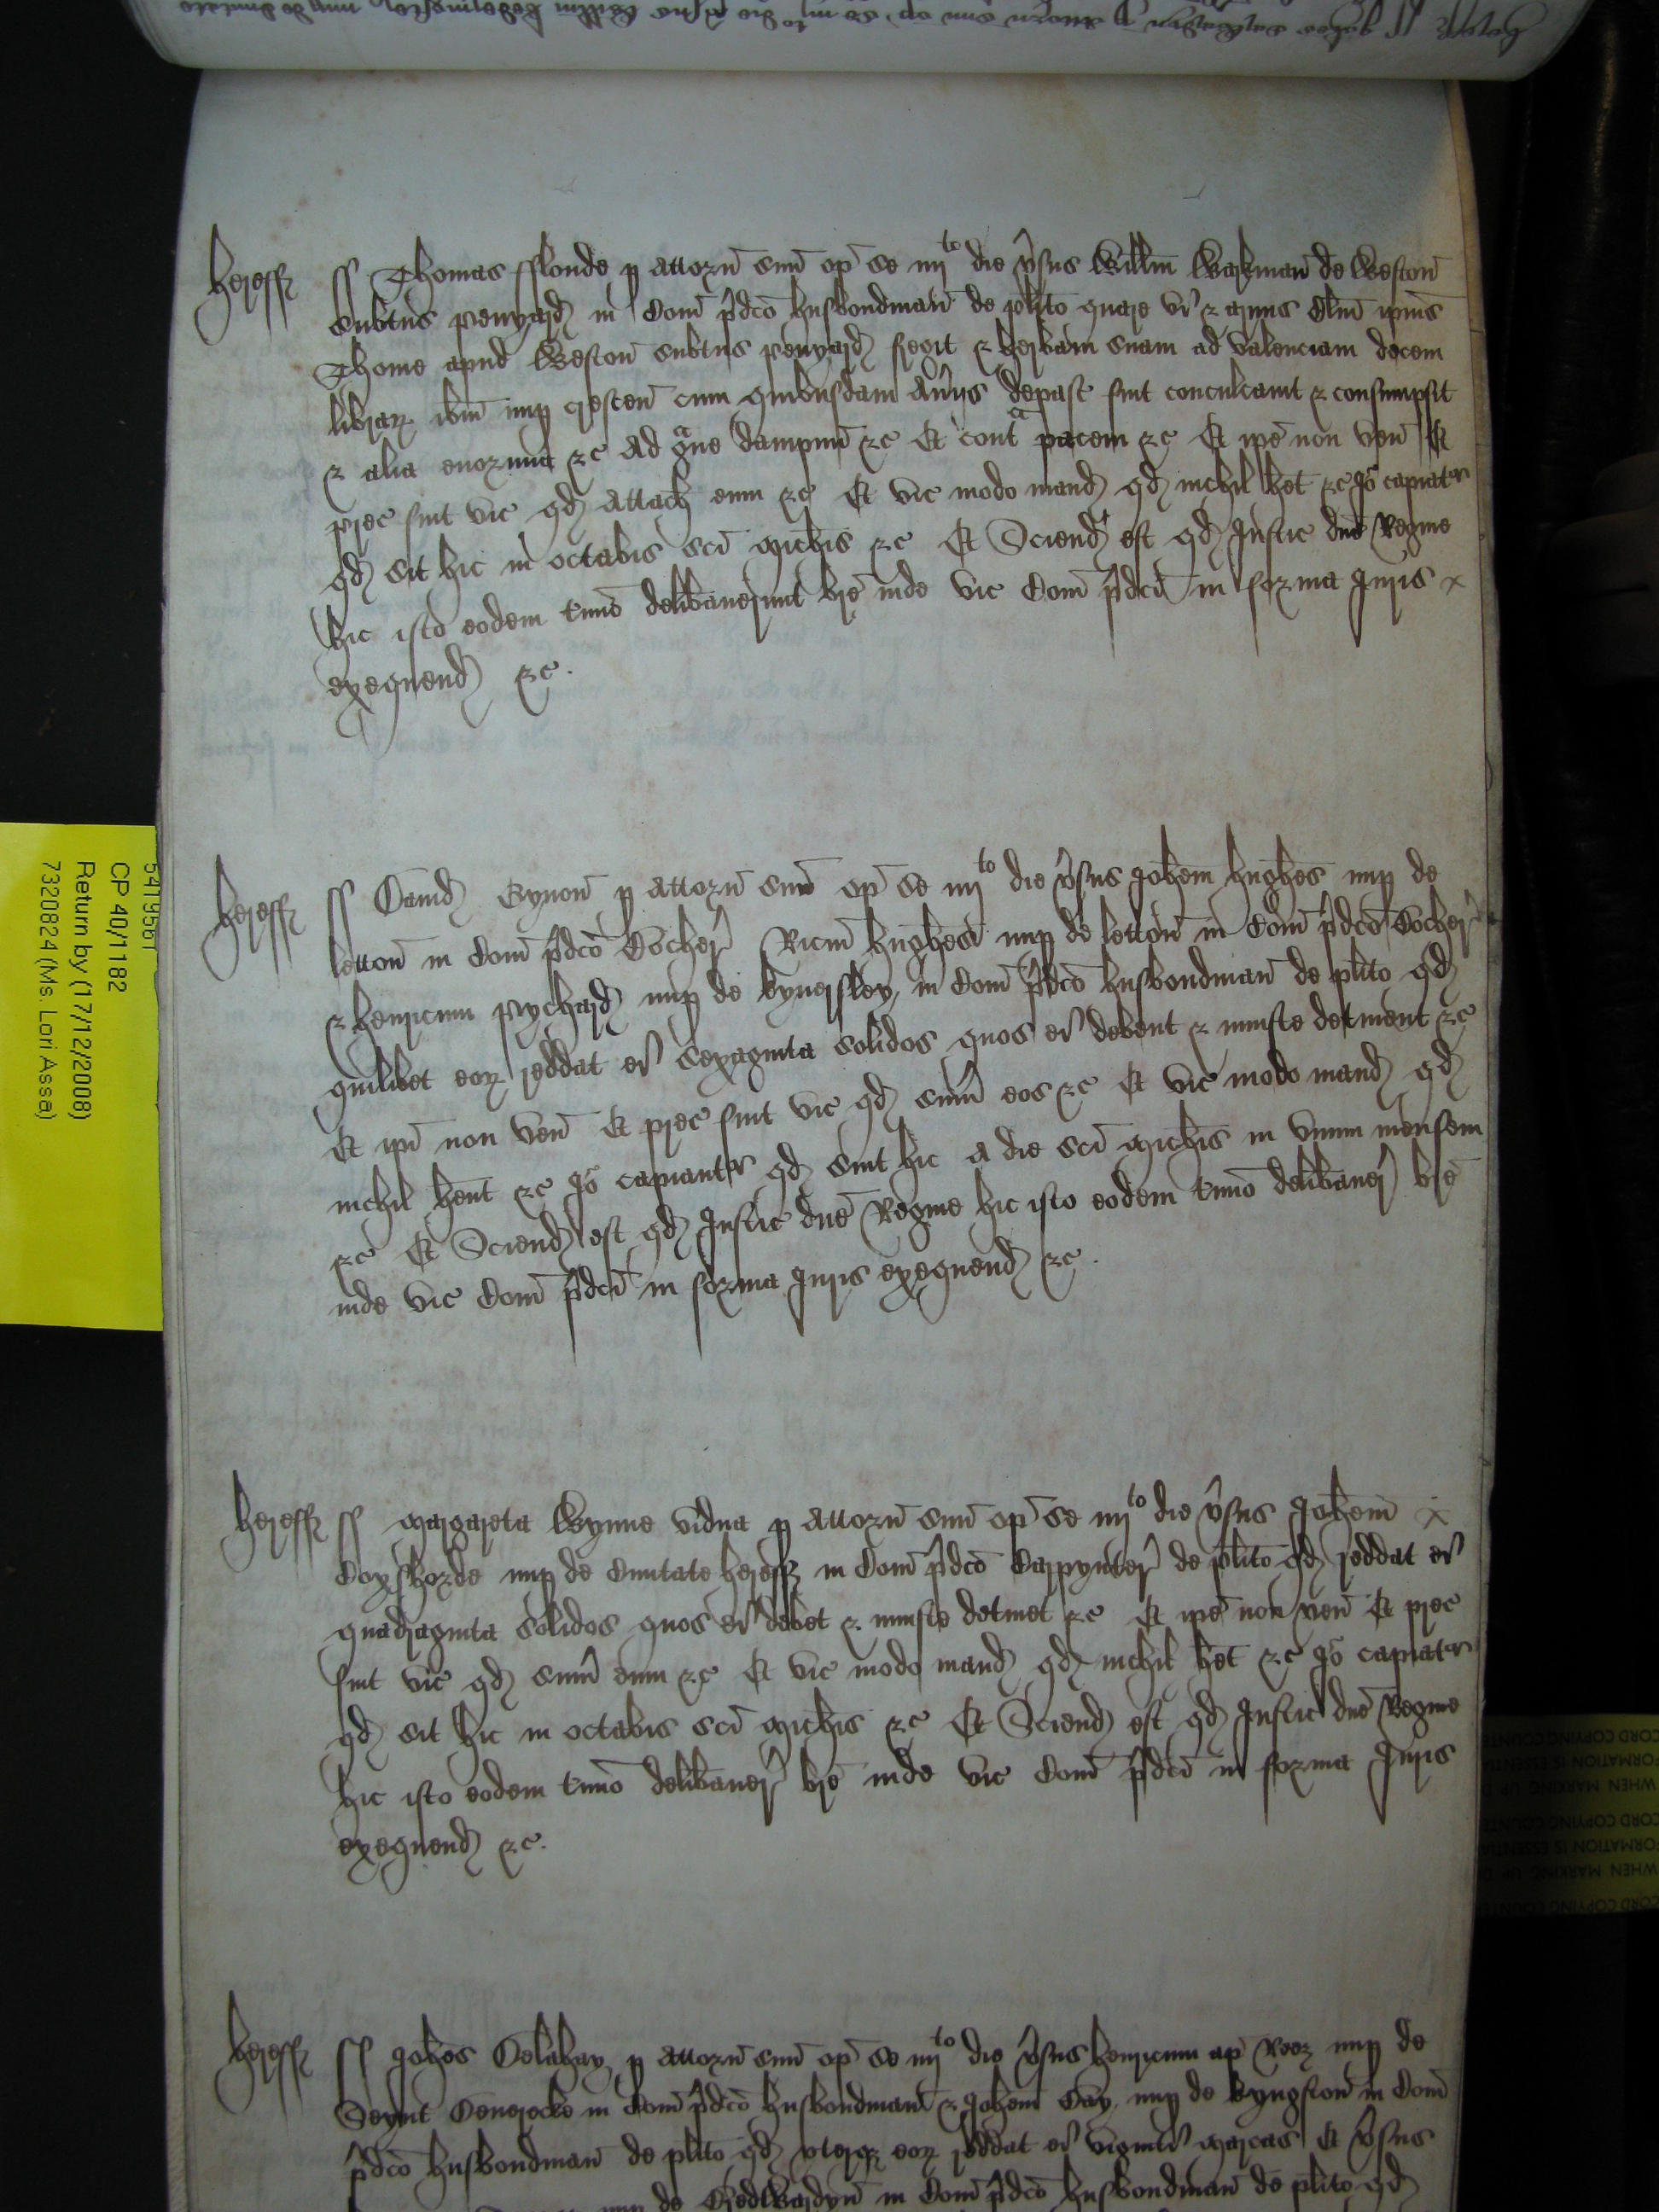 Hereff
ss Thomas fflonde p attorn suu op se iiijto die vsus Willm Warkman de Weston
subtus penyard in Com pdco husbondman de plito quare vi & armis Clm ipius
Thome apud Weston subtus penyard fregit & herbam suam ad valenciam decem
librar ibm nup crescen cum quibusdam aviis depast fuit conculcavit & consumpsit
& alia enormia &c Ad gave dampnu &c Et contra pacem &c Et ipe non ven Et
prec fuit vic qd attach eum &c Et vic modo mand qd nichil het &c Io capiatr
qd sit hic in octabis sci Michis &c Et Sciend est qd Justic dne Regine
hic isto eodem tmio delibaverunt bre inde vic Com pdci in forma Juris x
exequend &c.
Hereff
ss David Gynon p attorn suu op se iiijto die vsus Johem Hughes nup de
letton in Com pdco Bocher Ricm Hughes nup de letton in Com pdco Bocher
& Henricum Prychard nup de kynersley in Com pdco husbondman de plito qd
quilibet eor reddat ei sexaginta solidos quos ei debent & iniuste detinent &c
Et ipi non ven Et prec fuit vic qd sum eos &c Et vic modo mand qd
nichil hent &c Io capiantr qd sint hic a die sci Michis in unum mensem
&c Et Sciend est qd Justic dne Regine hic isto eodem tmio delibaver bre
inde vic Com pdci in forma Juris exequend &c.
Hereff
ss Margareta Wynne vidua p attorn suu op se iiijto die vsus Johem x
Coxshorde nup de Civitate Hereff in Com pdco Carpynter de plito qd reddat ei
quadraginta solidos quos ei debet & iniuste detinet &c Et ipe non ven Et prec
fuit vic qd sum eum &c Et vic modo mand qd nichil het &c Io capiatr
qd sit hic in octabis sci Michis &c Et Sciend est qd Justic dne Regine
hic isto eodem tmio delibaver bre inde vic Com pdci in forma Juris
exequend &c.
Hereff
ss Johes Delahay p attorn suu op se iiijto die vsus Henricum ap Rees nup de
Seynt Deverocke in Com pdco husbondman & Johem Day nup de kyngston in Com
pdco husbondman de plito qd uterq eor reddat ei viginti marcas Et vsus
nup de Bredwardyn in Com pdco husbondman de plito qd
CP 40/1182
Return by (17/12/2008)
73208824 (Ms. Lori Assa)